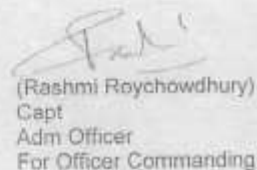 (Rashmi Roychowdhury)
Capt
Adm Officer
For Officer Commanding